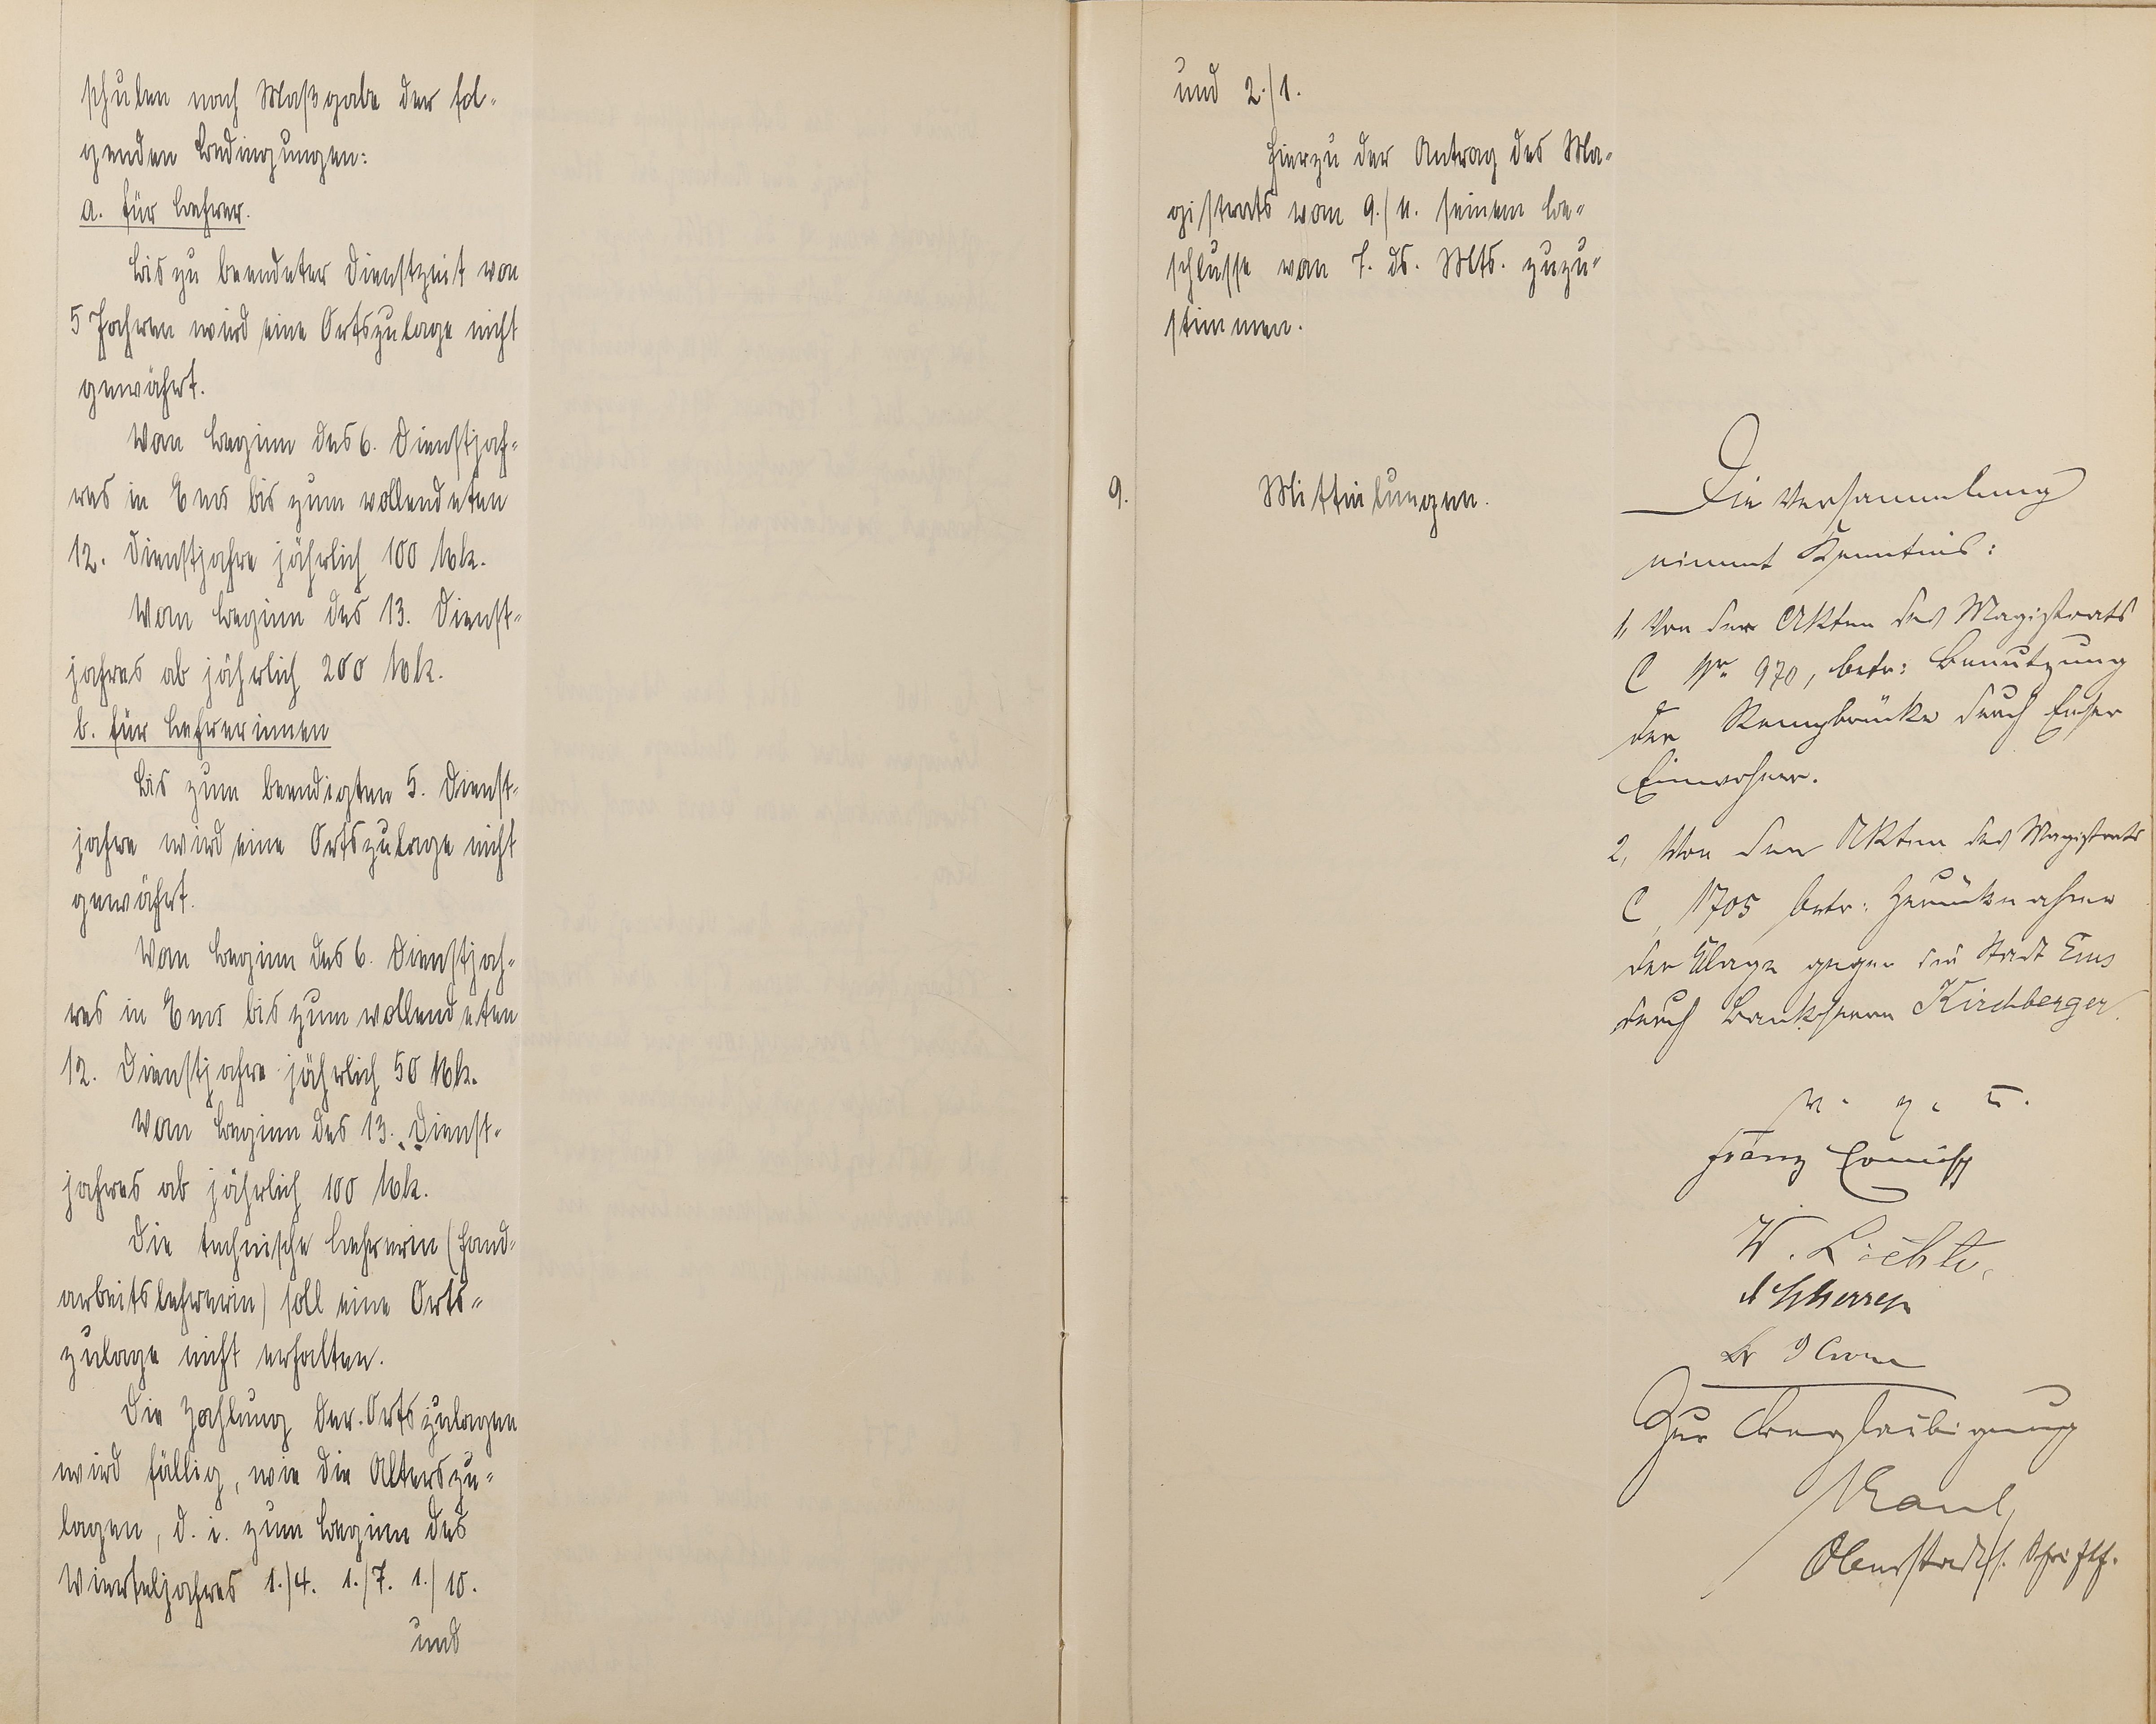 schulen nach Maßgabe der fol-
genden Bedingungen:
a. für Lehrer.
Bis zu beendeter Dienstzeit von
5 Jahren wird eine Ortszulage nicht
gewährt.
Von Beginn des 6. Dienstjah-
res in Ems bis zum vollendeten
12. Dienstjahre jährlich 100 Mk.
Von Beginn des 13. Dienst-
jahres ab jährlich 200 Mk.
b. für Lehrerinnen
Bis zum beendigten 5. Dienst-
jahre wird eine Ortszulage nicht
gewährt.
Von Beginn des 6. Dienstjah-
res in Ems bis zum vollendeten
12. Dienstjahre jährlich 50 Mk.
Von Beginn des 13. Dienst-
jahres ab jährlich 100 Mk.
Die technische Lehrerin (Hand-
arbeitslehrerin) soll eine Orts-
zulage nicht erhalten.
Die Zahlung der Ortszulagen
wird fällig, wie die Alterszu-
lagen, d. i. zum Beginn des
Vierteljahres 1./4. 1./7. 1./10.
und
und 2./1.
Hierzu der Antrag des Ma-
gistrats vom 9./11. seinem Be-
schlusse von 7. ds. Mts. zuzu-
stimmen.
9. Mitteilungen.
Die Versammlung
nimmt Kenntnis:
1, Von den Akten des Magistrats
C Nr 970, betr: Benutzung
der Remybrücke durch Emser
Einwohner.
2, Von den Akten des Magistrats
C 1705 betr: Zurücknahme
der Klage gegen die Stadt Ems
durch Bankherrn Kirchberger.
v. g. u.
Franz
W. Lichte
Dr
Zur Beglaubigung
Oberstadts.